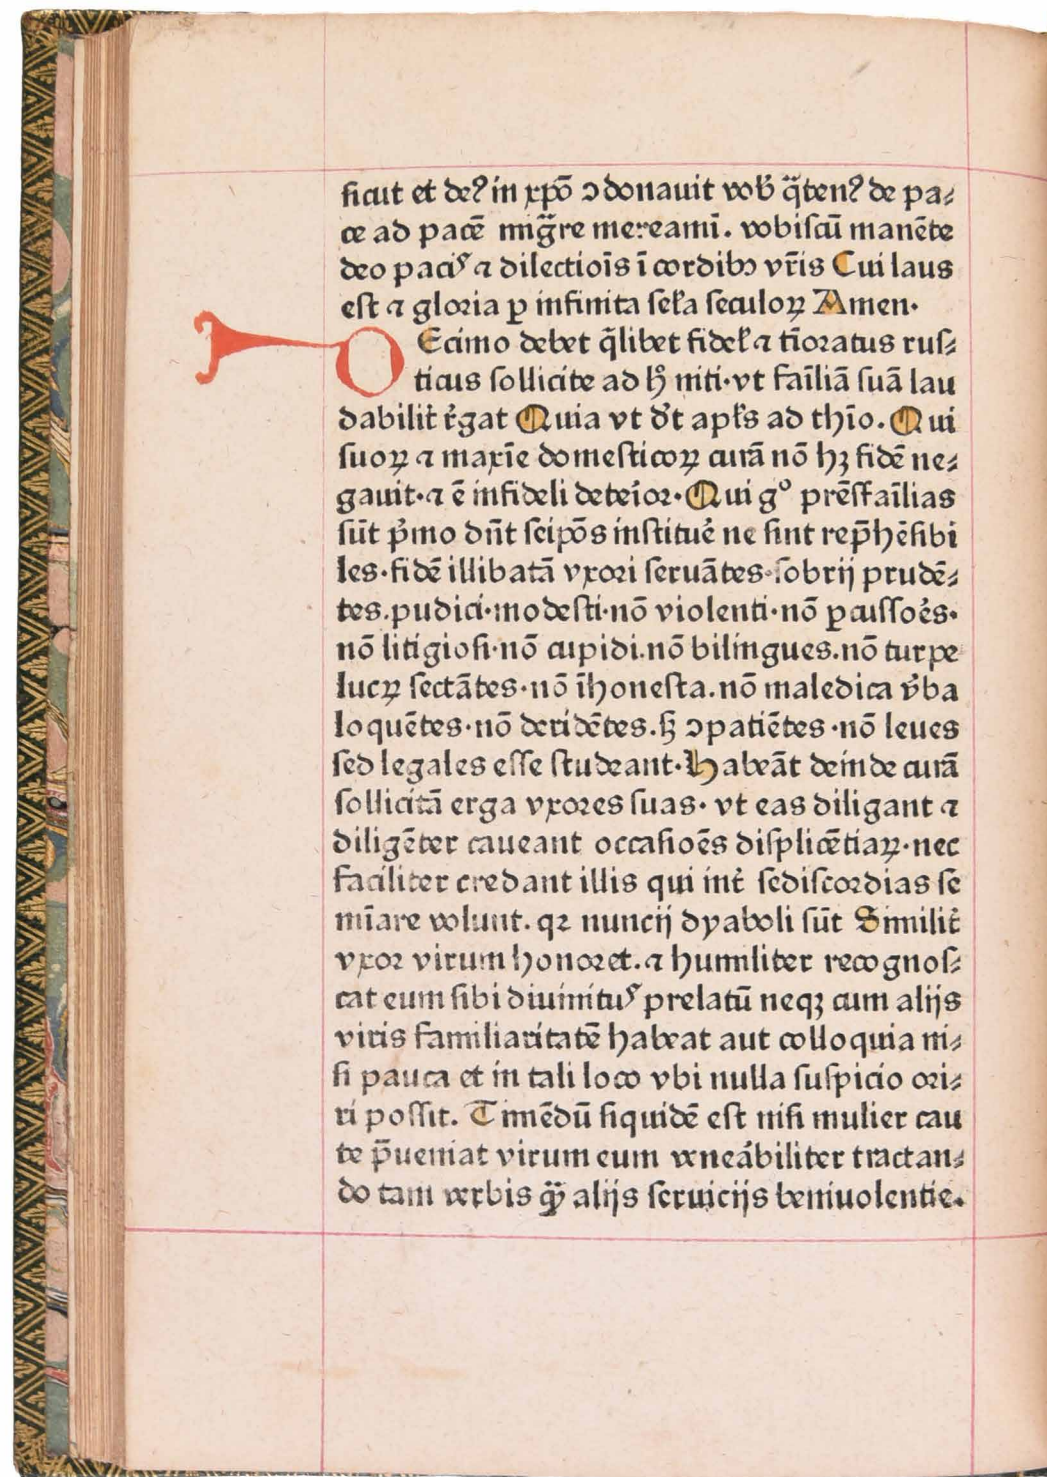 ficut et deꝰ in xp̄o ↄdonauit vob̾ q̈tenꝰ de pa⸗
ce ad pacē mig̈re mereamī. vobiſcū manēte
deo paciꝰ ⁊ dilectiōis ī cordibꝫ vr̄is Cui laus
eſt ⁊ gloria ꝑ infinita ſecl̄a ſeculoꝝ Amen·
DEcimo debet q̄libet fidel̾ ⁊ tīoratus ruſ⸗
ticus ſollicite ad hꝰ niti·vt faīliā ſuā lau
dabilit̾ r̾gat Quia vt dt̾ apl̾s ad thīo. Qui
ſuoꝝ ⁊ maxīe domeſticoꝝ curā nō hꝫ fidē ne⸗
gauit·⁊ ē infideli deteīor·Qui gͦ prēſfaīlias
ſūt p̾mo dn̄t ſeipōs inſtitue̾ ne ſint rep̄hēſibi
les·fidē illibatā vxori ſeruātes·ſobrij prudē⸗
tes.pudici·modeſti·nō violenti·nō ꝑcuſſoe̾s·
nō litigioſi·nō cupidi.nō bilingues.nō turpe
lucꝝ ſectātes·nō īhoneſta.nō maledica v̾ba
loquētes·nō deridētes.ſꝫ ↄpatiētes·nō leues
ſed legales eſſe ſtudeant·Habeāt deinde curā
ſollicitā erga vxores ſuas· vt eas diligant ⁊
diligēter caueant occaſioēs diſplicētiaꝝ·nec
faciliter credant illis qui int̾ ſediſcordias ſe
mīare volunt. qꝛ nuncij dyaboli ſūt Similit̾
vxor virum honoret.⁊ humiliter recognoſ⸗
cat eum ſibi diuinituꝰ prelatū neqꝫ cum alijs
viris familiaritatē habeat aut colloquia ni⸗
ſi pauca et in tali loco vbi nulla ſuſpicio ori⸗
ri poſſit. Timēdū ſiquidē eſt niſi mulier cau
te p̄ueniat virum eum veneābiliter tractan⸗
do tam verbis q̈ꝫ alijs ſeruicijs beniuolentie.